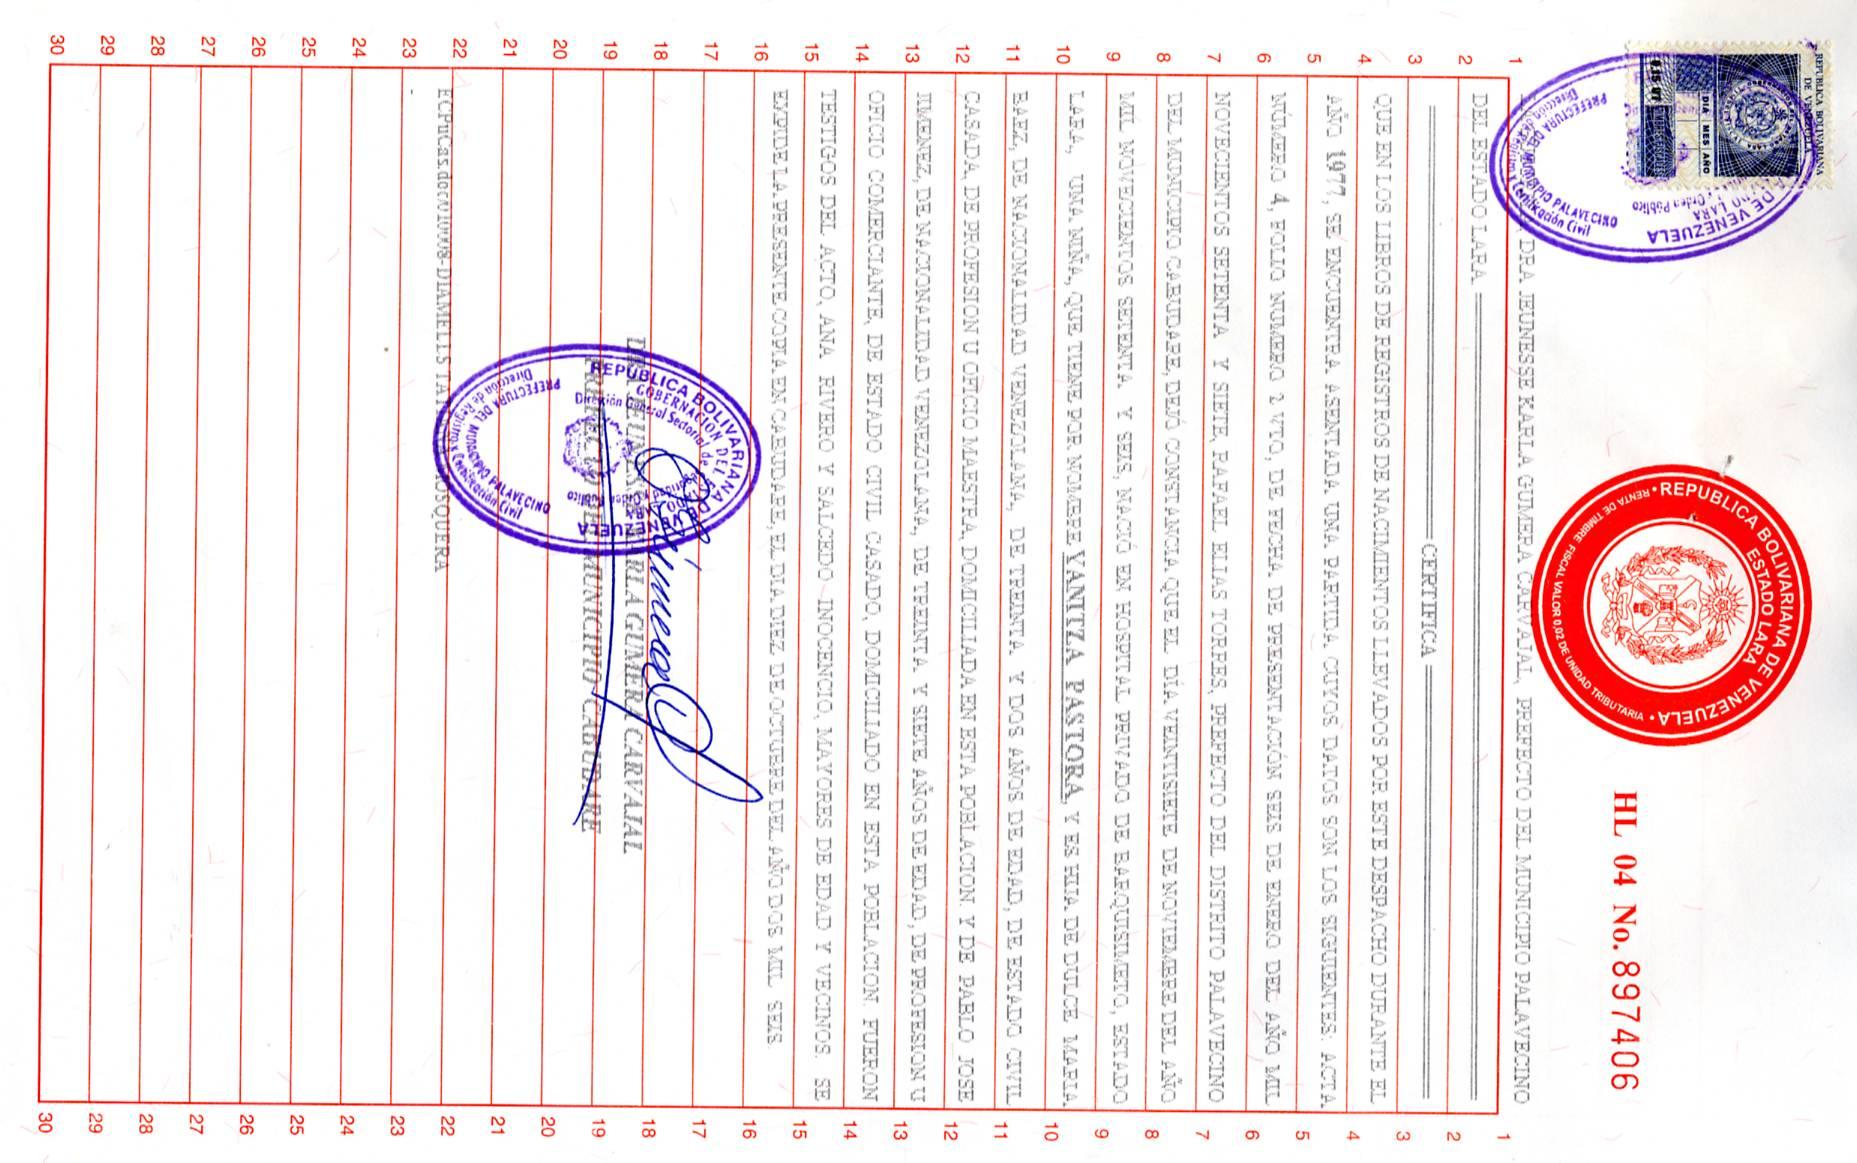 REPUBLICA BOLIVARIANA
DE VENEZUELA
DIA MES AÑO
REPUBLICA BOLIVARIANA DE VENEZUELA
ESTADO LARA
RENTA DE TIMBRE FISCAL VALOR 0,02 DE UNIDAD TRIBUTARIA
HL 04 No. 897406
DE VENEZUELA
PREFECTURA DEL MUNICIPIO PALAVECINO
DRA JEUNESSE KARLA GUMERA CARVAJAL, PREFECTO DEL MUNICIPIO PALAVECINO
DEL ESTADO LARA
CERTIFICA
QUE EN LOS LIBROS DE REGISTROS DE NACIMIENTOS LLEVADOS POR ESTE DESPACHO DURANTE EL
AÑO 1977, SE ENCUENTRA ASENTADA UNA PARTIDA CUYOS DATOS SON LOS SIGUIENTES: ACTA
NÚMERO 4, FOLIO NUMERO 2 VTO, DE FECHA DE PRESENTACIÓN SEIS DE ENERO DEL AÑO MIL
NOVECIENTOS SETENTA Y SIETE, RAFAEL ELIAS TORRES, PREFECTO DEL DISTRITO PALAVECINO
DEL MUNICIPIO CABUDARE, DEJÓ CONSTANCIA QUE EL DÍA VEINTISIETE DE NOVIEMBRE DEL AÑO
MIL NOVECIENTOS SETENTA Y SEIS, NACIÓ EN HOSPITAL PRIVADO DE BARQUISIMETO, ESTADO
LARA, UNA NIÑA, QUE TIENE POR NOMBRE YANITZA PASTORA, Y ES HIJA DE DULCE MARIA
BAEZ, DE NACIONALIDAD VENEZOLANA, DE TREINTA Y DOS AÑOS DE EDAD, DE ESTADO CIVIL
CASADA, DE PROFESION U OFICIO MAESTRA, DOMICILIADA EN ESTA POBLACION. Y DE PABLO JOSE
JIMENEZ, DE NACIONALIDAD VENEZOLANA, DE TREINTA Y SIETE AÑOS DE EDAD, DE PROFESION U
OFICIO COMERCIANTE, DE ESTADO CIVIL CASADO, DOMICILIADO EN ESTA POBLACION. FUERON
TESTIGOS DEL ACTO, ANA RIVERO Y SALCEDO INOCENCIO, MAYORES DE EDAD Y VECINOS. SE
EXPIDE LA PRESENTE COPIA EN CABUDARE, EL DIA DIEZ DE OCTUBRE DEL AÑO DOS MIL SEIS
KARLA GUMERA CARVAJAL
MUNICIPIO CABUDARE
REPUBLICA BOLIVARIANA DE VENEZUELA
GOBERNACIÓN DEL ESTADO LARA
Dirección General Sectorial de Seguridad y Orden Público
PREFECTURA DEL MUNICIPIO PALAVECINO
Dirección de Registro y Certificación Civil
1 2 3 4 5 6 7 8 9 10 11 12 13 14 15 16 17 18 19 20 21 22 23 24 25 26 27 28 29 30
1 2 3 4 5 6 7 8 9 10 11 12 13 14 15 16 17 18 19 20 21 22 23 24 25 26 27 28 29 30